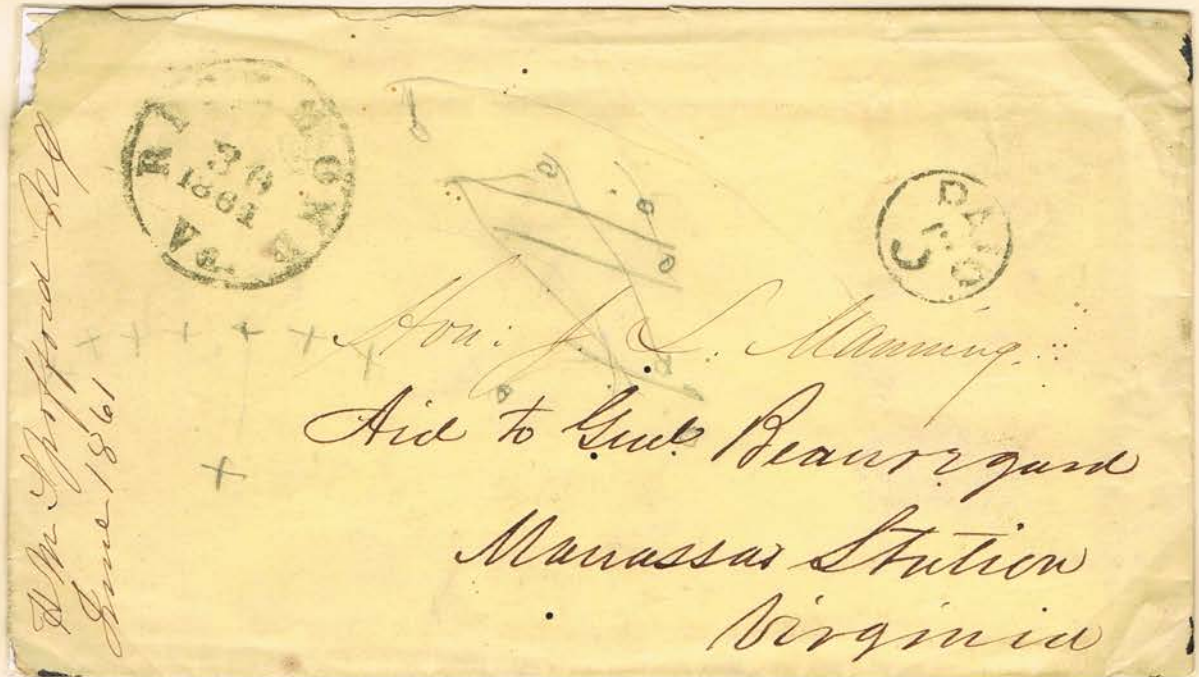 RI MOND
30
1861
VA.
PAID
5
Hon: J. L. Manning.
Aid to Genl. Beauregard
Manassas Station
Virginia
Spofford
June 1861